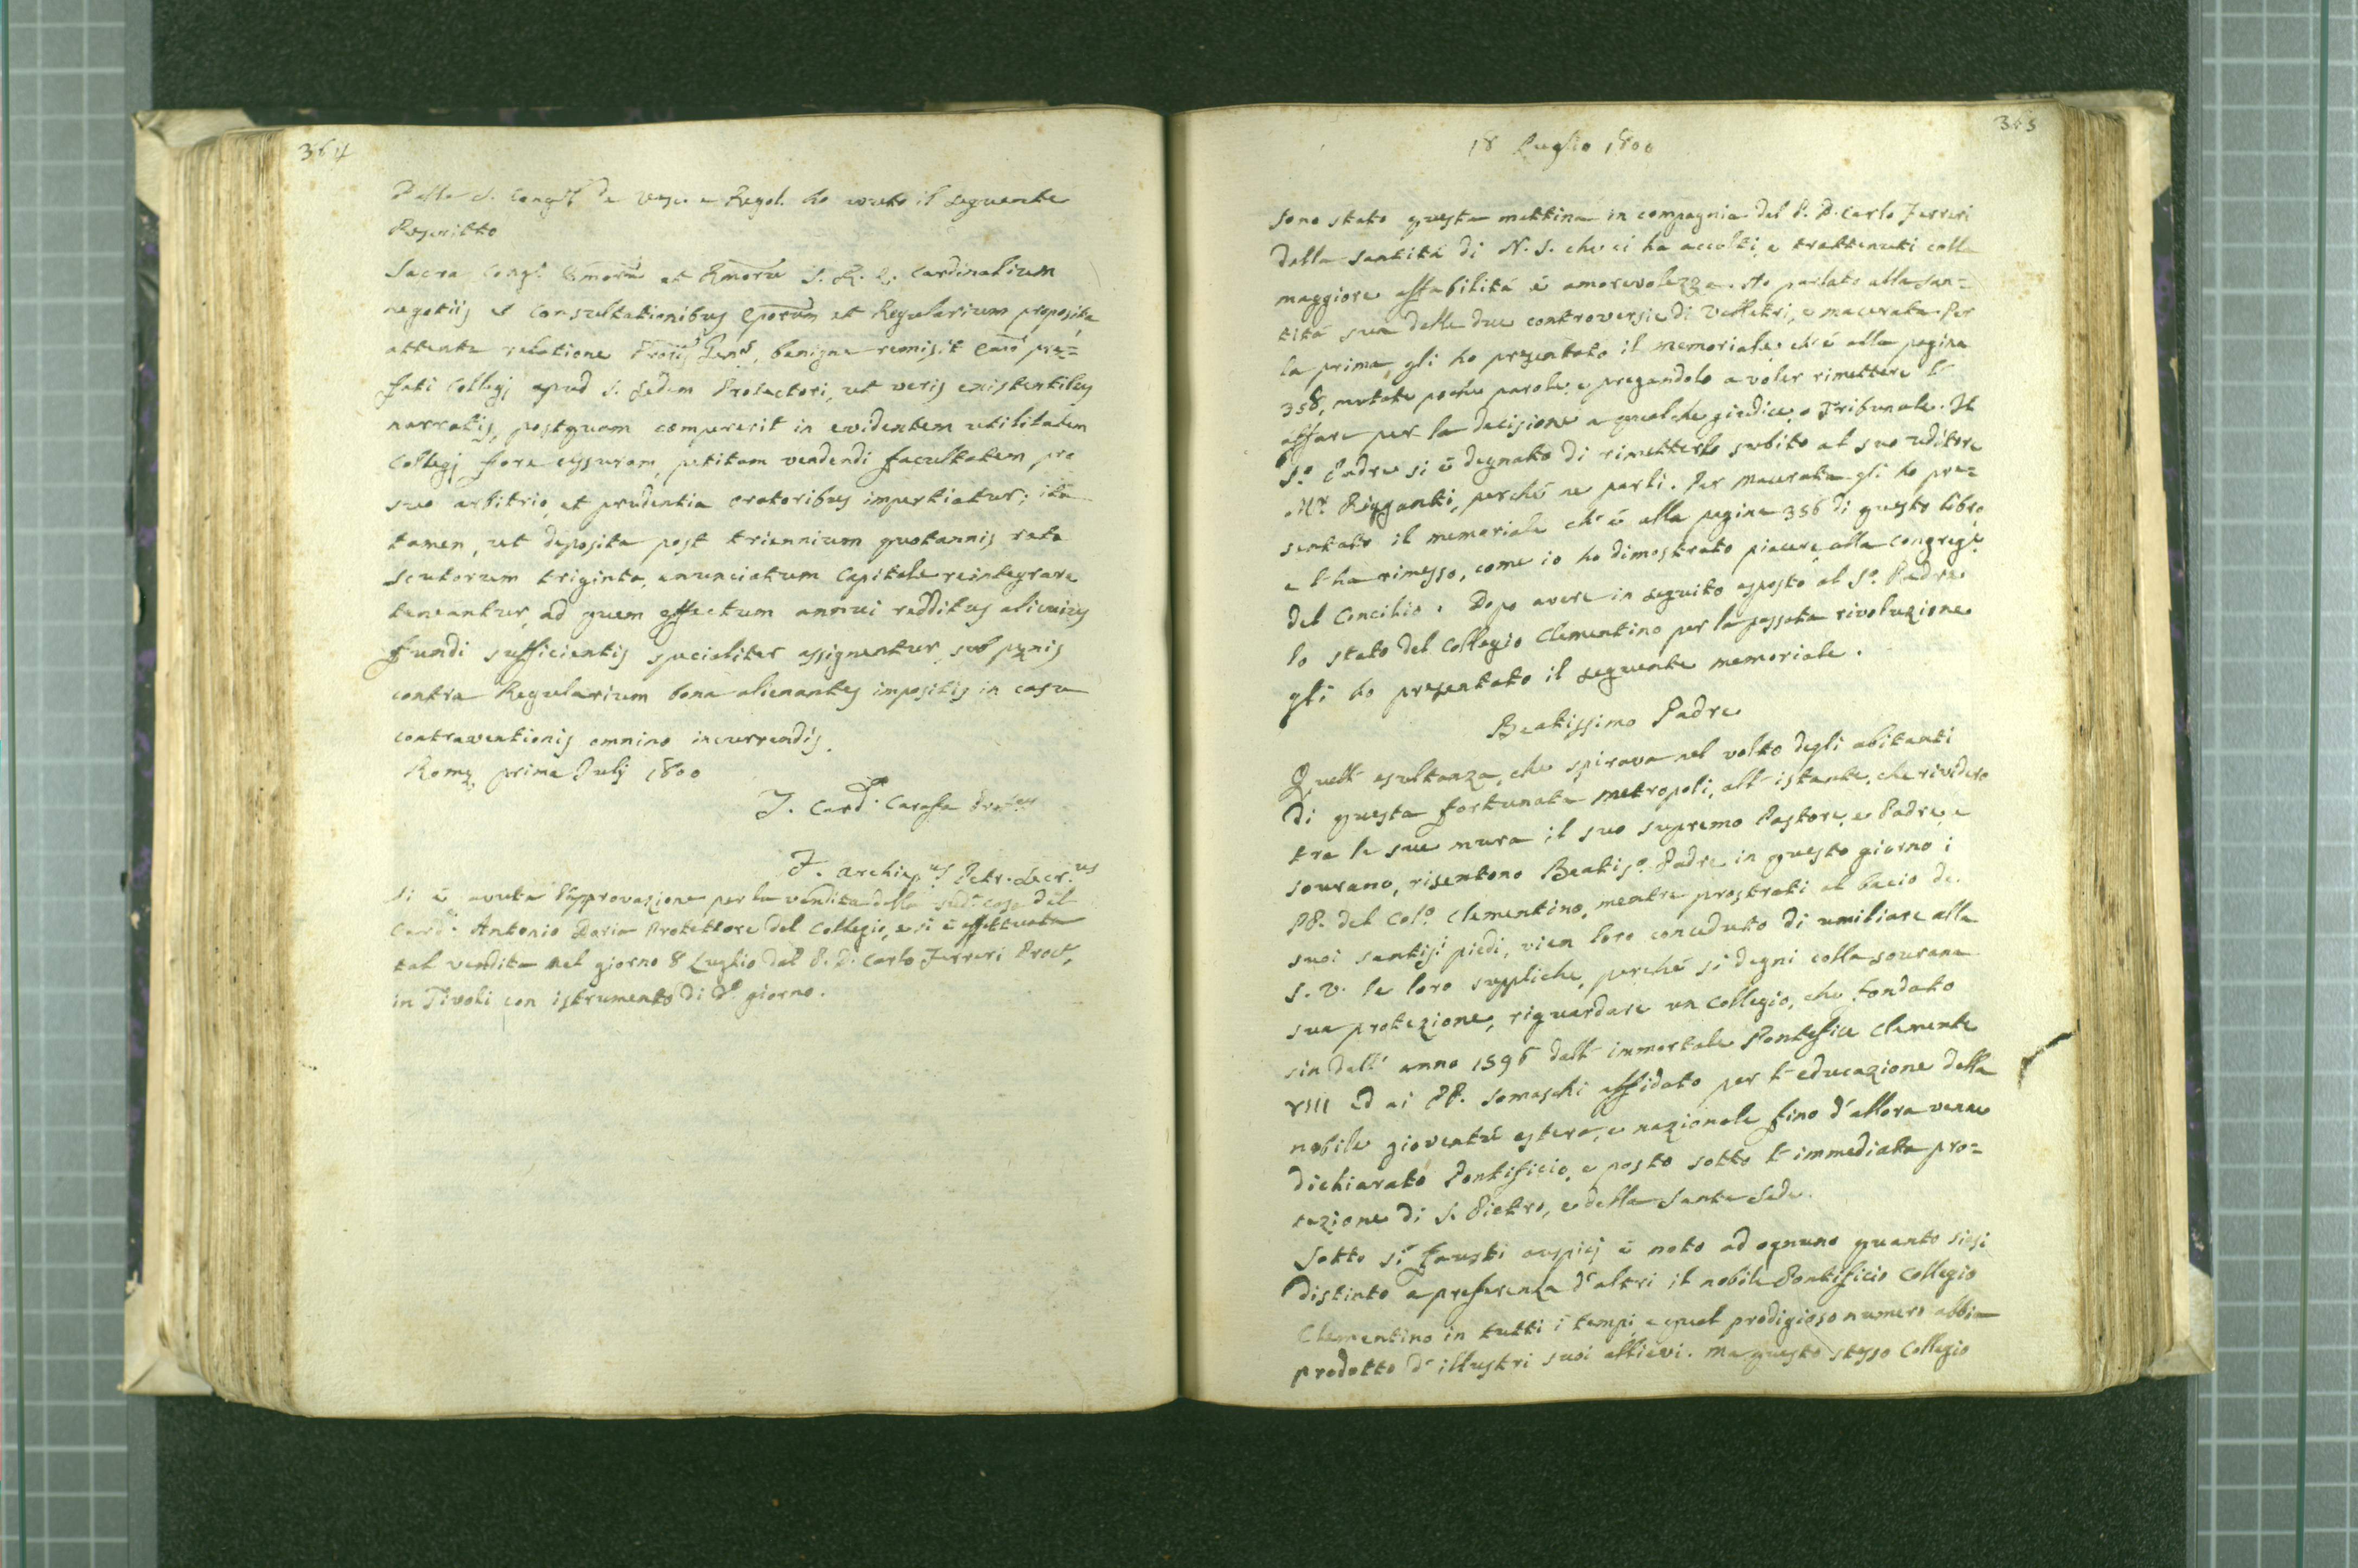 364
Dalla S. Congne de Vesc. e Regol. ho avuto il seguente
Rescritto
Sacra Congr. Emorum et Rmorum S. R. E. Cardinalium
negotiis et consultationibus Eporum et Regularium proposita
attenta relatione Procris Genlis, benigne remisit Emo præ=
fati Collegj apud S. Sedem Protectori, ut veris existentibus
narratis, postquam compererit in evidentem utilitatem
Collegj fore cessuram, petitam vendendi facultatem pro
suo arbitrio, et prudentia oratoribus impertiatur; ita
tamen, ut deposita post triennium quotannis rata
scutorum triginta, enunciatum Capitale reintegrare
teneantur, ad quem effectum annui redditus alicuius
fundi sufficientis specialiter assignentur, sub pœnis
contra Regularium bona alienantes impositis in casu
contraventionis omnino incurrendis.
Romæ prima Julj 1800
F. Card. Carafa
F. Archiep.us Petr. Secr.us
Si è avuta l'approvazione per la vendita della sudta casa dal
Card. Antonio Doria Protettore del Collegio, e si è effettuata
tal vendita nel giorno 8 Luglio dal P. D. Carlo Ferreri Proct,
in Tivoli con istrumento di do giorno.
365
18 Luglio 1800
Sono stato questa mattina in compagnia del P. D. Carlo Ferreri
dalla Santità di N. S. che ci ha accolti, e trattenuti colla
maggiore affabilità è amorevolezza. Ho parlato alla San=
tità sua delle due controversie di Velletri, e Macerata. Per
la prima, gli ho presentato il memoriale ch'è alla pagina
358, mutate poche parole, e pregandolo a voler rimettere l'
affare per la decisione a qualche giudice o Tribunale. Il
So. Padre si è degnato di rimetterlo subito al suo uditore
Mr. Rigganti, perché ne parli. Per Macerata gli ho pre=
sentato il memoriale ch'è alla pagina 356 di questo libro
e l'ha rimesso, come io ho dimostrato piacere, alla Congreg.e
del Concilio. Dopo avere in seguito esposto al So. Padre
lo stato del Collegio Clementino per la passata rivoluzione
gli ho presentato il seguente memoriale.
Beatissimo Padre
Quell'esultanza, che spirava nel volto degli abitanti
di questa fortunata metropoli, all'istante, che rividero
tra le sue mura il suo supremo Pastore, e Padre, e
sovrano, risentono Beatiso. Padre in questo giorno i
PP. del Colo. Clementino, mentre prostrati al bacio de.
suoi santisi piedi, vien loro conceduto di umiliare alla
S. V. le loro suppliche, perché si degni colla sovrana
sua protezione, riguardare un Collegio, che fondato
sin dall'anno 1596 dall'immortale Pontefice Clemente
VIII ed ai PP. Somaschi affidato per l'educazione della
nobile gioventù estera, e nazionale fino d'allora venne
dichiarato Pontificio, e posto sotto l'immediata pro=
tezione di S. Pietro, e della Santa Sede.
Sotto sì fausti auspicj è noto ad ognuno quanto siesi
distinto a preferenza d'altri il nobile Pontificio Collegio
Clementino in tutti i tempi, e qual prodigioso numero abbia
prodotto d'illustri suoi allievi. Ma questo stesso Collegio